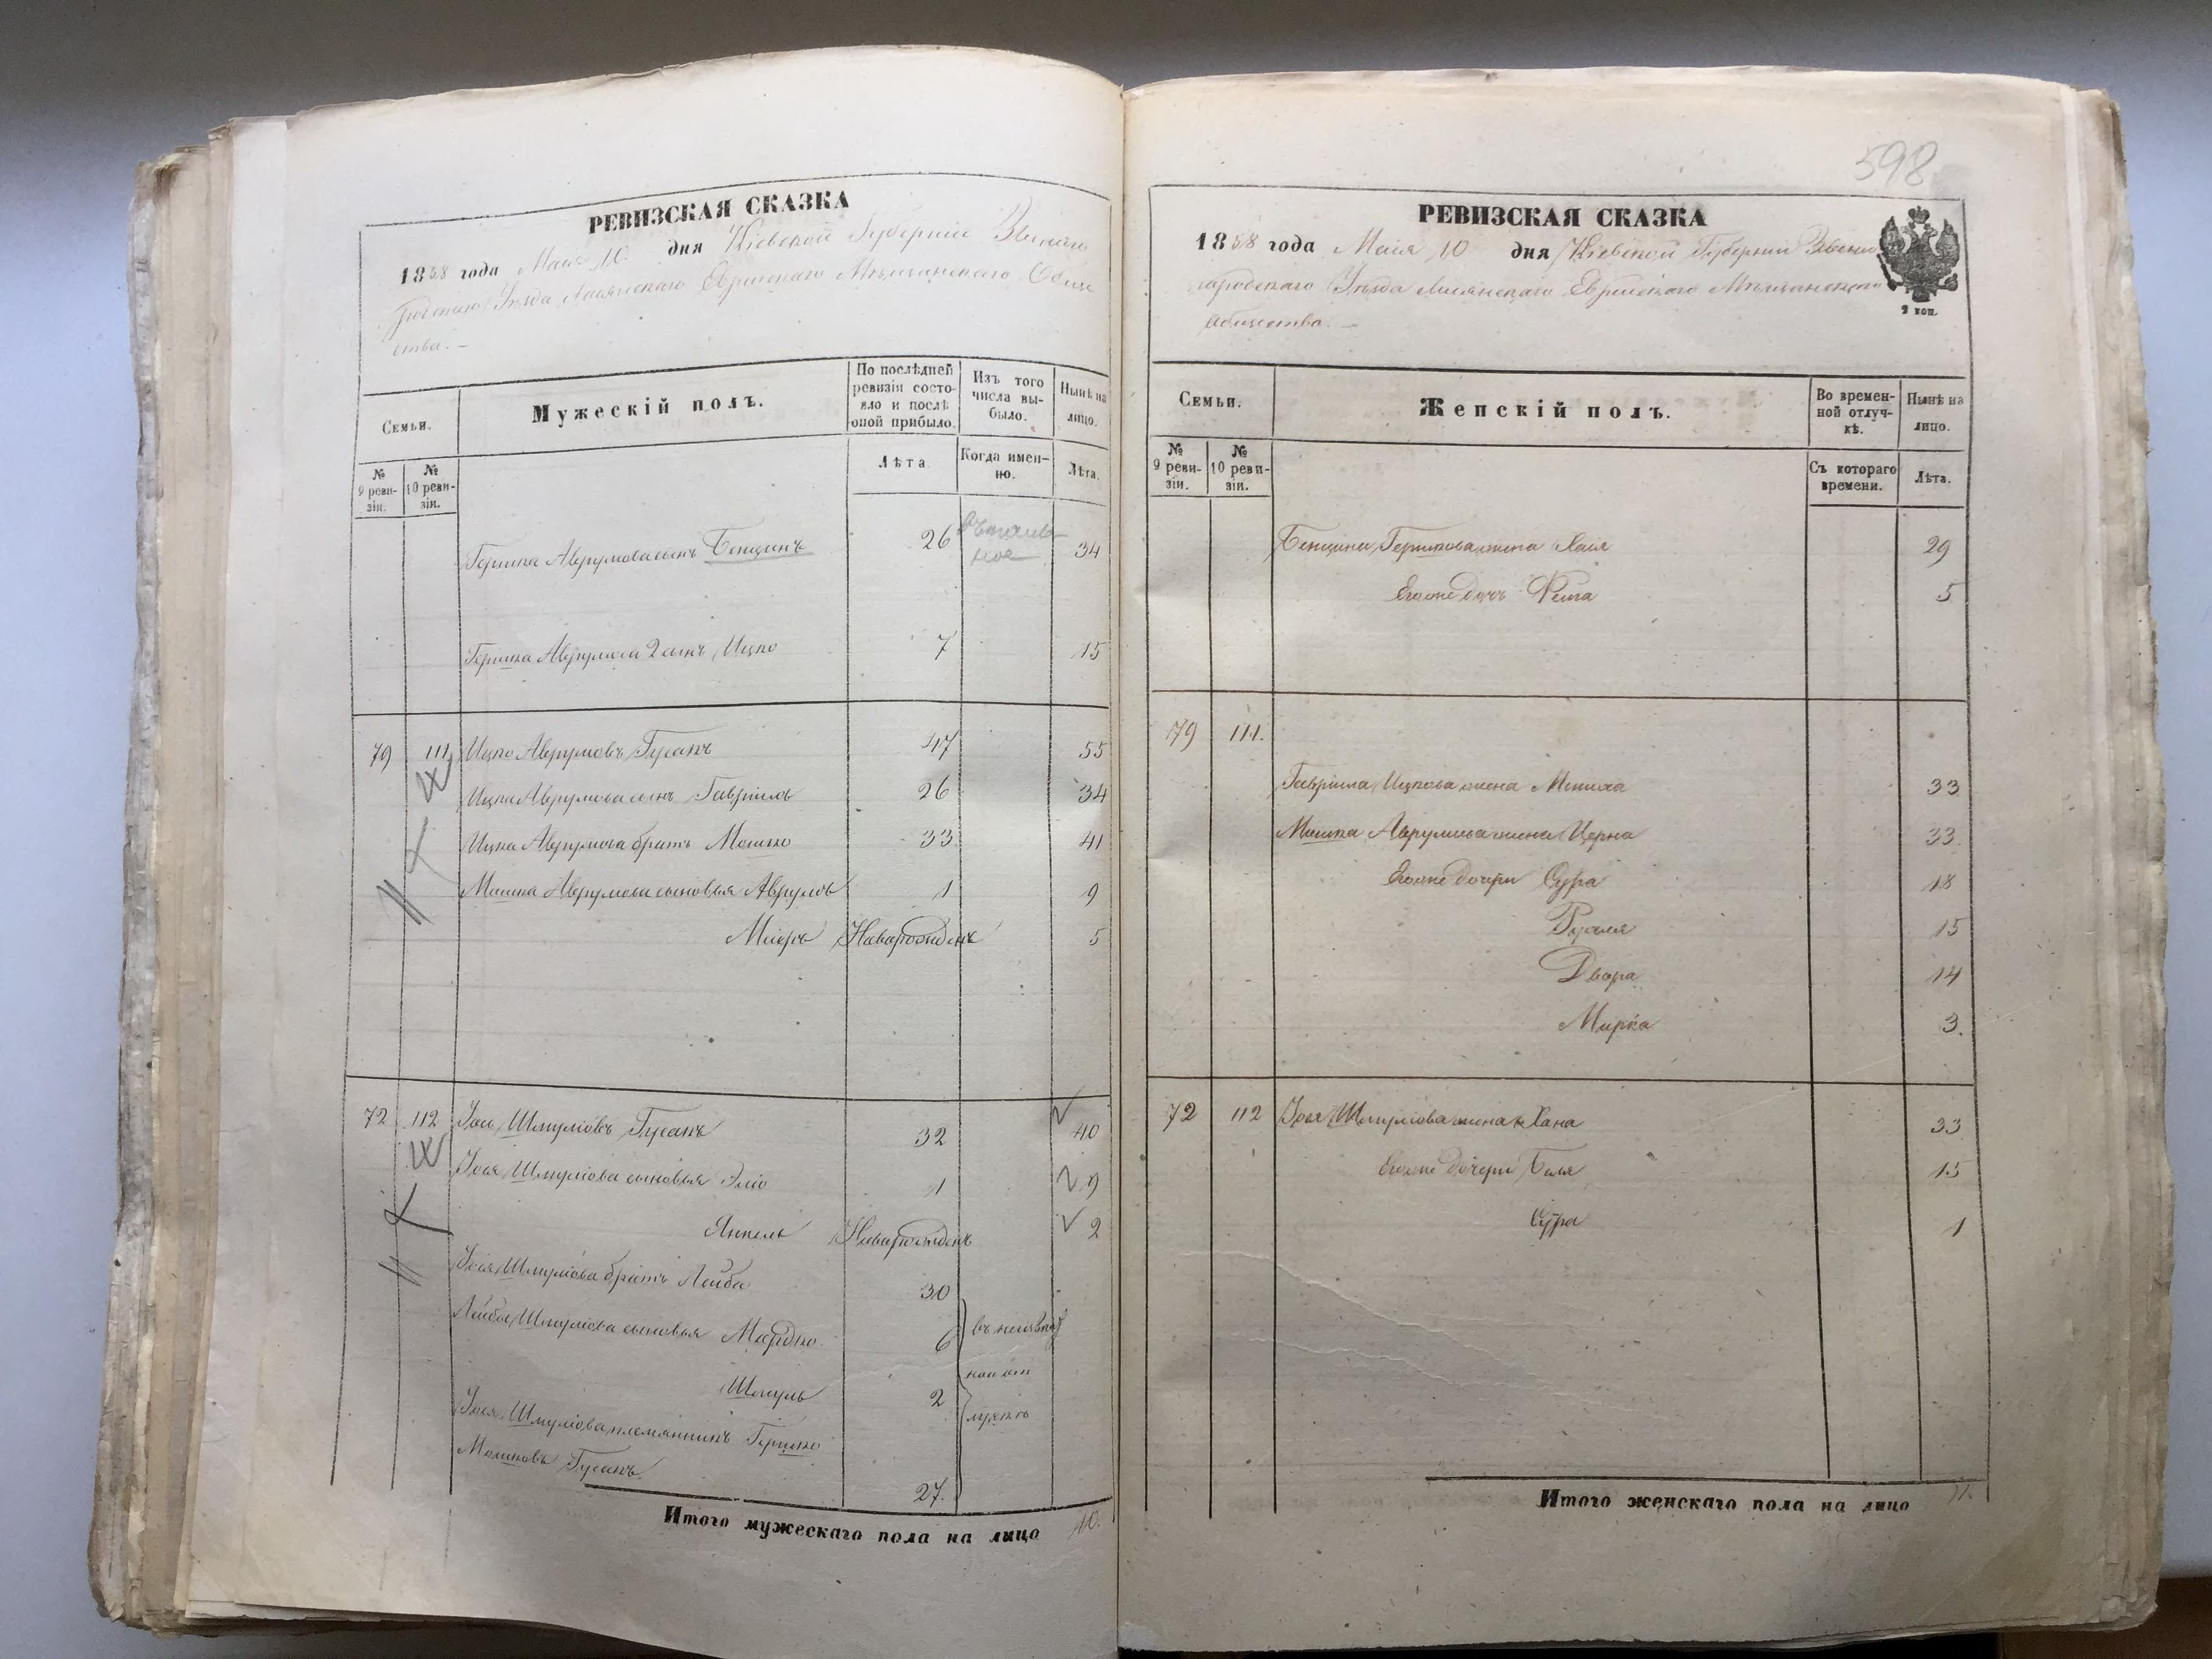 РЕВИЗСКАЯ СКАЗКА
1858 года Мая 10. дня Кіевской Губерніи Звениго
родскаго Уѣзда Лисянскаго Еврейскаго Мѣщанскаго Обще
ства. –
Семьи.
Мужескій полъ.
По послѣдней ревизіи состояло и послѣ оной прибыло.
Изъ того числа выбыло.
Нынѣ на лицо.
№ 9 ревизіи.
№ 10 ревизіи.
Лѣта.
Когда именно.
Лѣта.
Гершка Аврумова сынъ 26 34
Гершка Аврумова 2 сынъ Ицко 7 15
79 111 Ицко Аврумовъ Гусакъ 47 55
Ицка Аврумова сынъ Гавріилъ 26 34
Ицка Аврумова братъ Мошко 33 41
Мошка Аврумова сыновья Аврумъ 1 9
Мееръ Новорожденъ 5
72 112 Іось Шмуліовъ Гусакъ 32 40
Іося Шмуліова сыновья Эліо 1 9
Янкель Новорожденъ 2
Іося Шмуліова братъ Лейба 30
Лейбы Шмуліова сыновья Мордко 6 въ неизвѣст
Шмуль 2 ной от
лучкѣ
Іося Шмуліова племянникъ Гершко
Мошковъ Гусакъ. 27.
Итого мужескаго пола на лицо 10.
598
РЕВИЗСКАЯ СКАЗКА
1858 года Мая 10 дня Кіевской Губерніи Звени
городскаго Уѣзда Лисянскаго Еврейскаго Мѣщанскаго
Общества. –
2 коп.
Семьи.
Женскій полъ.
Во временной отлучкѣ.
Нынѣ на лицо.
№ 9 ревизіи.
№ 10 ревизіи.
Съ котораго времени.
Лѣта.
Гершкова жена Хая 29
Его же дочь Фейга 5
79 111.
Гавріила Ицкова жена Мениха 33
Мошка Аврумова жена Церна 33
Его же дочери Сура 18
Рухля 15
Двора 14
Мирка 3.
72 112 Іося Шмуліова жена Хана 33
Его же дочери Бейля 15
Сура 1
Итого женскаго пола на лицо 11.